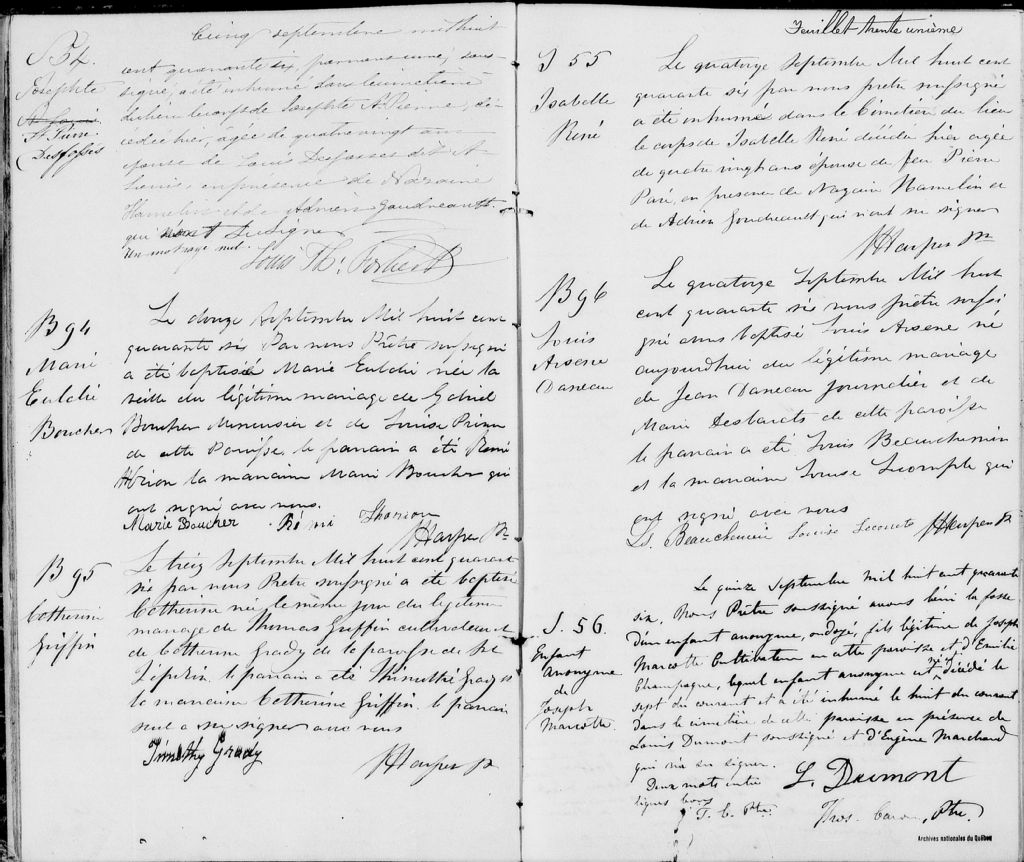 S 54.
Josephte
St. Pierre
Desfossés
Cinq septembre mil huit
cent quarante six par nous curé sous-
signé, a été inhumé dans le cimetière
du lieu le corps de Josephte St. Pierre, dé-
cédée hier, agée de quatre vingt ans
épouse de Louis Desfossés dit
Louis, en présence de Nazaire
Hamelin et de Adrien Gaudreault
qui n'ont su signer
Un mot rayé nul.
B 94
Marie
Eulchi
Boucher
Le douze Septembre Mil huit cent
quarante six Par nous Prêtre soussigné
a été baptisée Marie Eulchi née la
veille du légitime mariage de Gabriel
Boucher Menuisier et de Louise Prince
de cette Paroisse le parrain a été Rémi
Thérion la marraine Marie Boucher qui
ont signé avec nous.
Marie Boucher Rémi Therion
JHarper Ptr
B 95
Catherine
Griffin
Le treize Septembre Mil huit cent quarante
six par nous Prêtre soussigné a été baptisé
Catherine née le même jour du légitime
mariage de Thomas Griffin cultivateur et
de Catherine Grady de la paroisse de St
Zéphirin. le parrain a été Thimothé Grady et
la marraine Catherine Griffin. le parrain
seul a su signer avec nous
Timothy Grady
JHarper Ptr
Feuillet trente unième
S 55
Isabelle
René
Le quatorze Septembre Mil huit cent
quarante six par nous prêtre soussigné
a été inhumé dans le Cimetière du lieu
le corps de Isabelle René décédée hier agée
de quatre vingt ans épouse de feu Pierre
Paré, en présence de Nazaire Hamelin et
de Adrien Goudreault qui n'ont su signer
JHarper Ptr
B 96
Louis
Arsene
Daneau
Le quatorze Septembre Mil huit
cent quarante six nous prêtre soussi
gné avons baptisé Louis Arsene né
aujourd'hui du légitime mariage
de Jean Daneau journalier et de
Marie Desbarats de cette paroisse
le parrain a été Louis Beauchemin
et la marraine Louise Lecompte qui
ont signé avec nous
Ls. Beauchemin Louise Lecomte JHarper Ptr
S. 56.
Enfant
anonyme
de
Joseph
Marcotte.
Le quinze Septembre mil huit cent quarante
six, Nous Prêtre soussigné avons béni la fosse
d'un enfant anonyme, ondoyé, fils légitime de Joseph
Marcotte Cultivateur en cette paroisse et d'Emilie
Champagne, lequel enfant anonyme est décédé le
sept du courant et a été inhumé le huit du courant
dans le cimetière de cette paroisse en présence de
Louis Dumont soussigné et d'Eugène Marchand
qui n'a su signer.
Deux mots entre
lignes bons
T. C. Ptre.
L. Dumont
Thos. Caron, Ptre.
Archives nationales du Québec